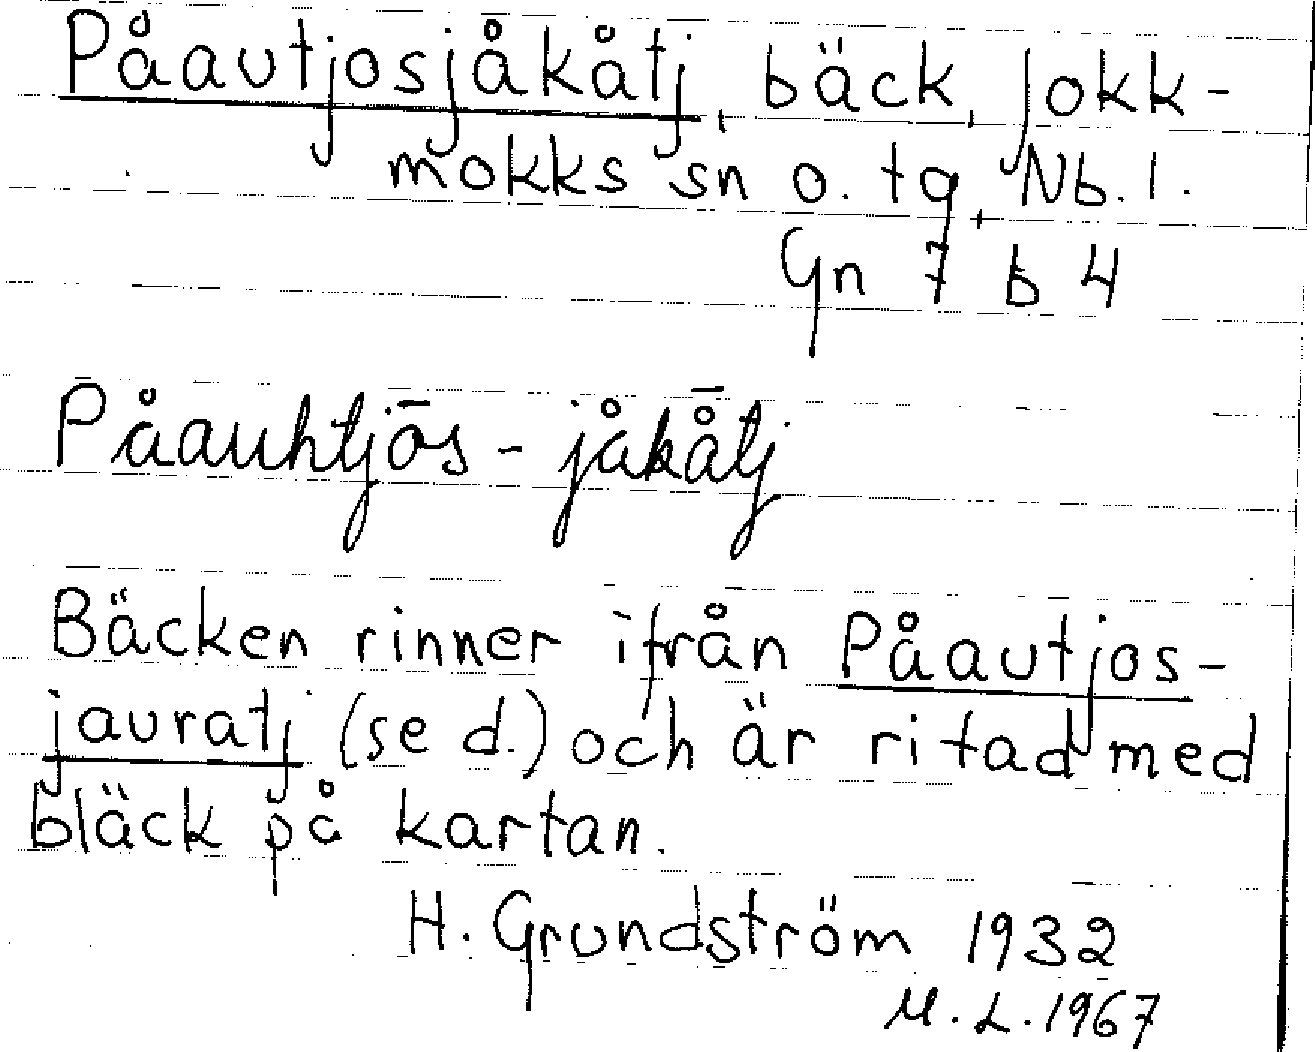 Påautjosjåkåtj, bäck, Jokk-
mokks sn o. tg, Nb. l.
Gn 7 b 4
Påauhtjōs - jåkå̄tj
Bäcken rinner ifrån Påautjos-
jauratj (se d.) och är ritad med
bläck på kartan.
H. Grundström 1932
M. L. 1967